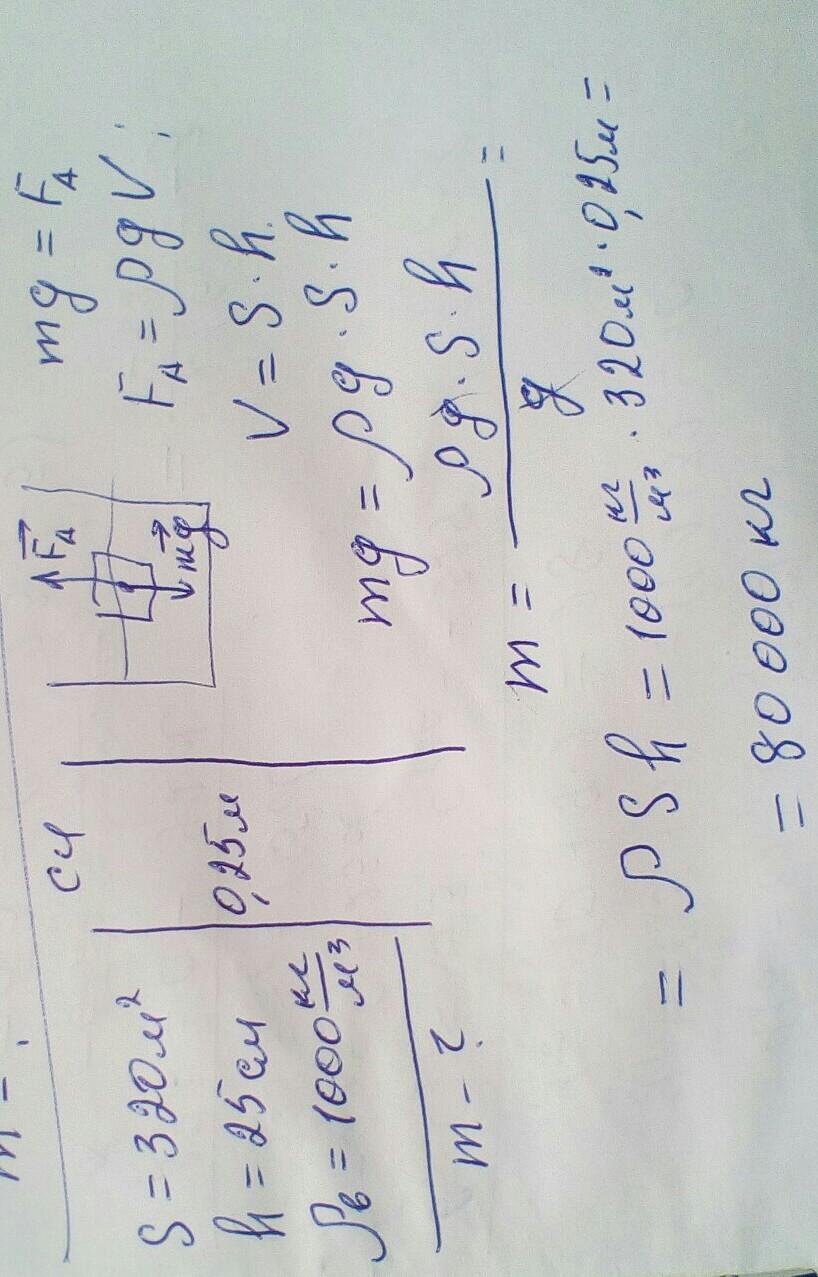 m - ?
СИ
S = 320 м²
h = 25 см
0,25 м
ρв = 1000 кг/м³
m - ?
F⃗A
mg⃗
mg = FA
FA = ρgV;
V = S · h
mg = ρg · S · h
m = ρg · S · h / g =
= ρSh = 1000 кг/м³ · 320 м² · 0,25 м =
= 80 000 кг